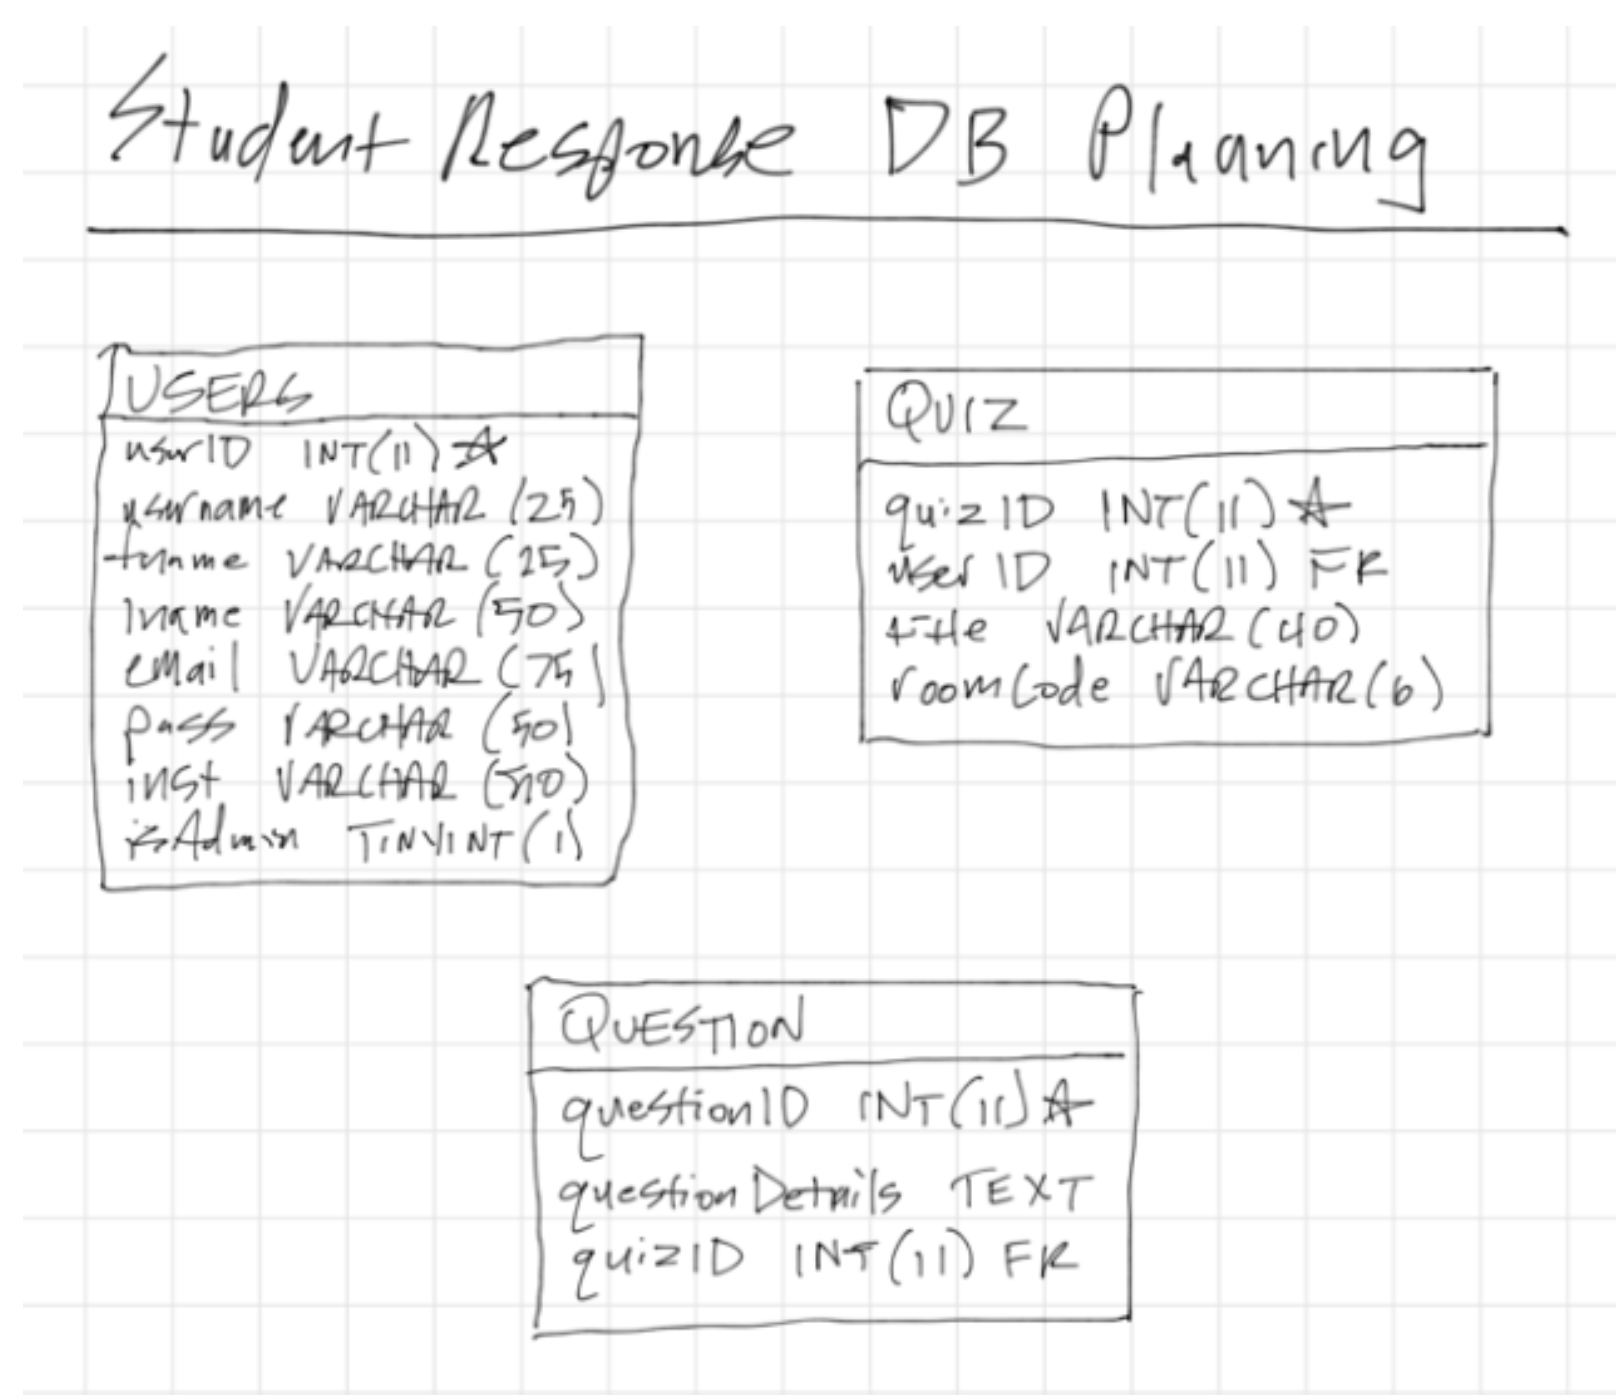 Student Response DB Planing
USERS
userID INT(11) ☆
username VARCHAR (25)
fname VARCHAR (25)
lname VARCHAR (50)
email VARCHAR (75)
pass VARCHAR (50)
inst VARCHAR (50)
isAdmin TINYINT(1)
QUIZ
quizID INT(11) ☆
userID INT(11) FK
title VARCHAR(40)
roomCode VARCHAR(6)
QUESTION
questionID INT(11) ☆
questionDetails TEXT
quizID INT(11) FK